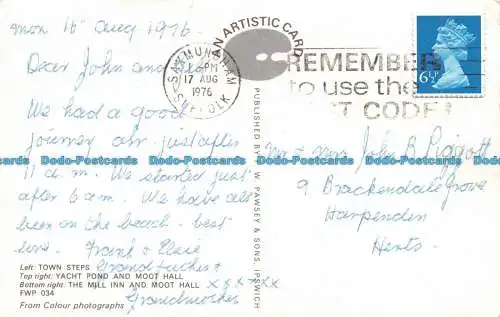 Mon 16 Aug 1976
Dear John and
We had a good
journey arr. just after
11 a.m. We started just
after 6 a.m. We have all
been on the beach - best
love. Frank & Elsie
Grandfather &
Grandmother
x x x x x x
Left: TOWN STEPS
Top right: YACHT POND AND MOOT HALL
Bottom right: THE MILL INN AND MOOT HALL
FWP 034
From Colour photographs
AN ARTISTIC CARD
PUBLISHED BY F. W. PAWSEY & SONS, IPSWICH
SAXMUNDHAM
1 - PM
17 AUG
1976
SUFFOLK
REMEMBER
to use the
POST CODE
6½P
Mr & Mrs John B Piggott
9 Brackendale Grove
Harpenden
Herts.
Dodo-Postcards Dodo-Postcards Dodo-Postcards Dodo-Postcards
Dodo-Postcards Dodo-Postcards Dodo-Postcards Dodo-Postcards
Dodo-Postcards Dodo-Postcards Dodo-Postcards Dodo-Postcards